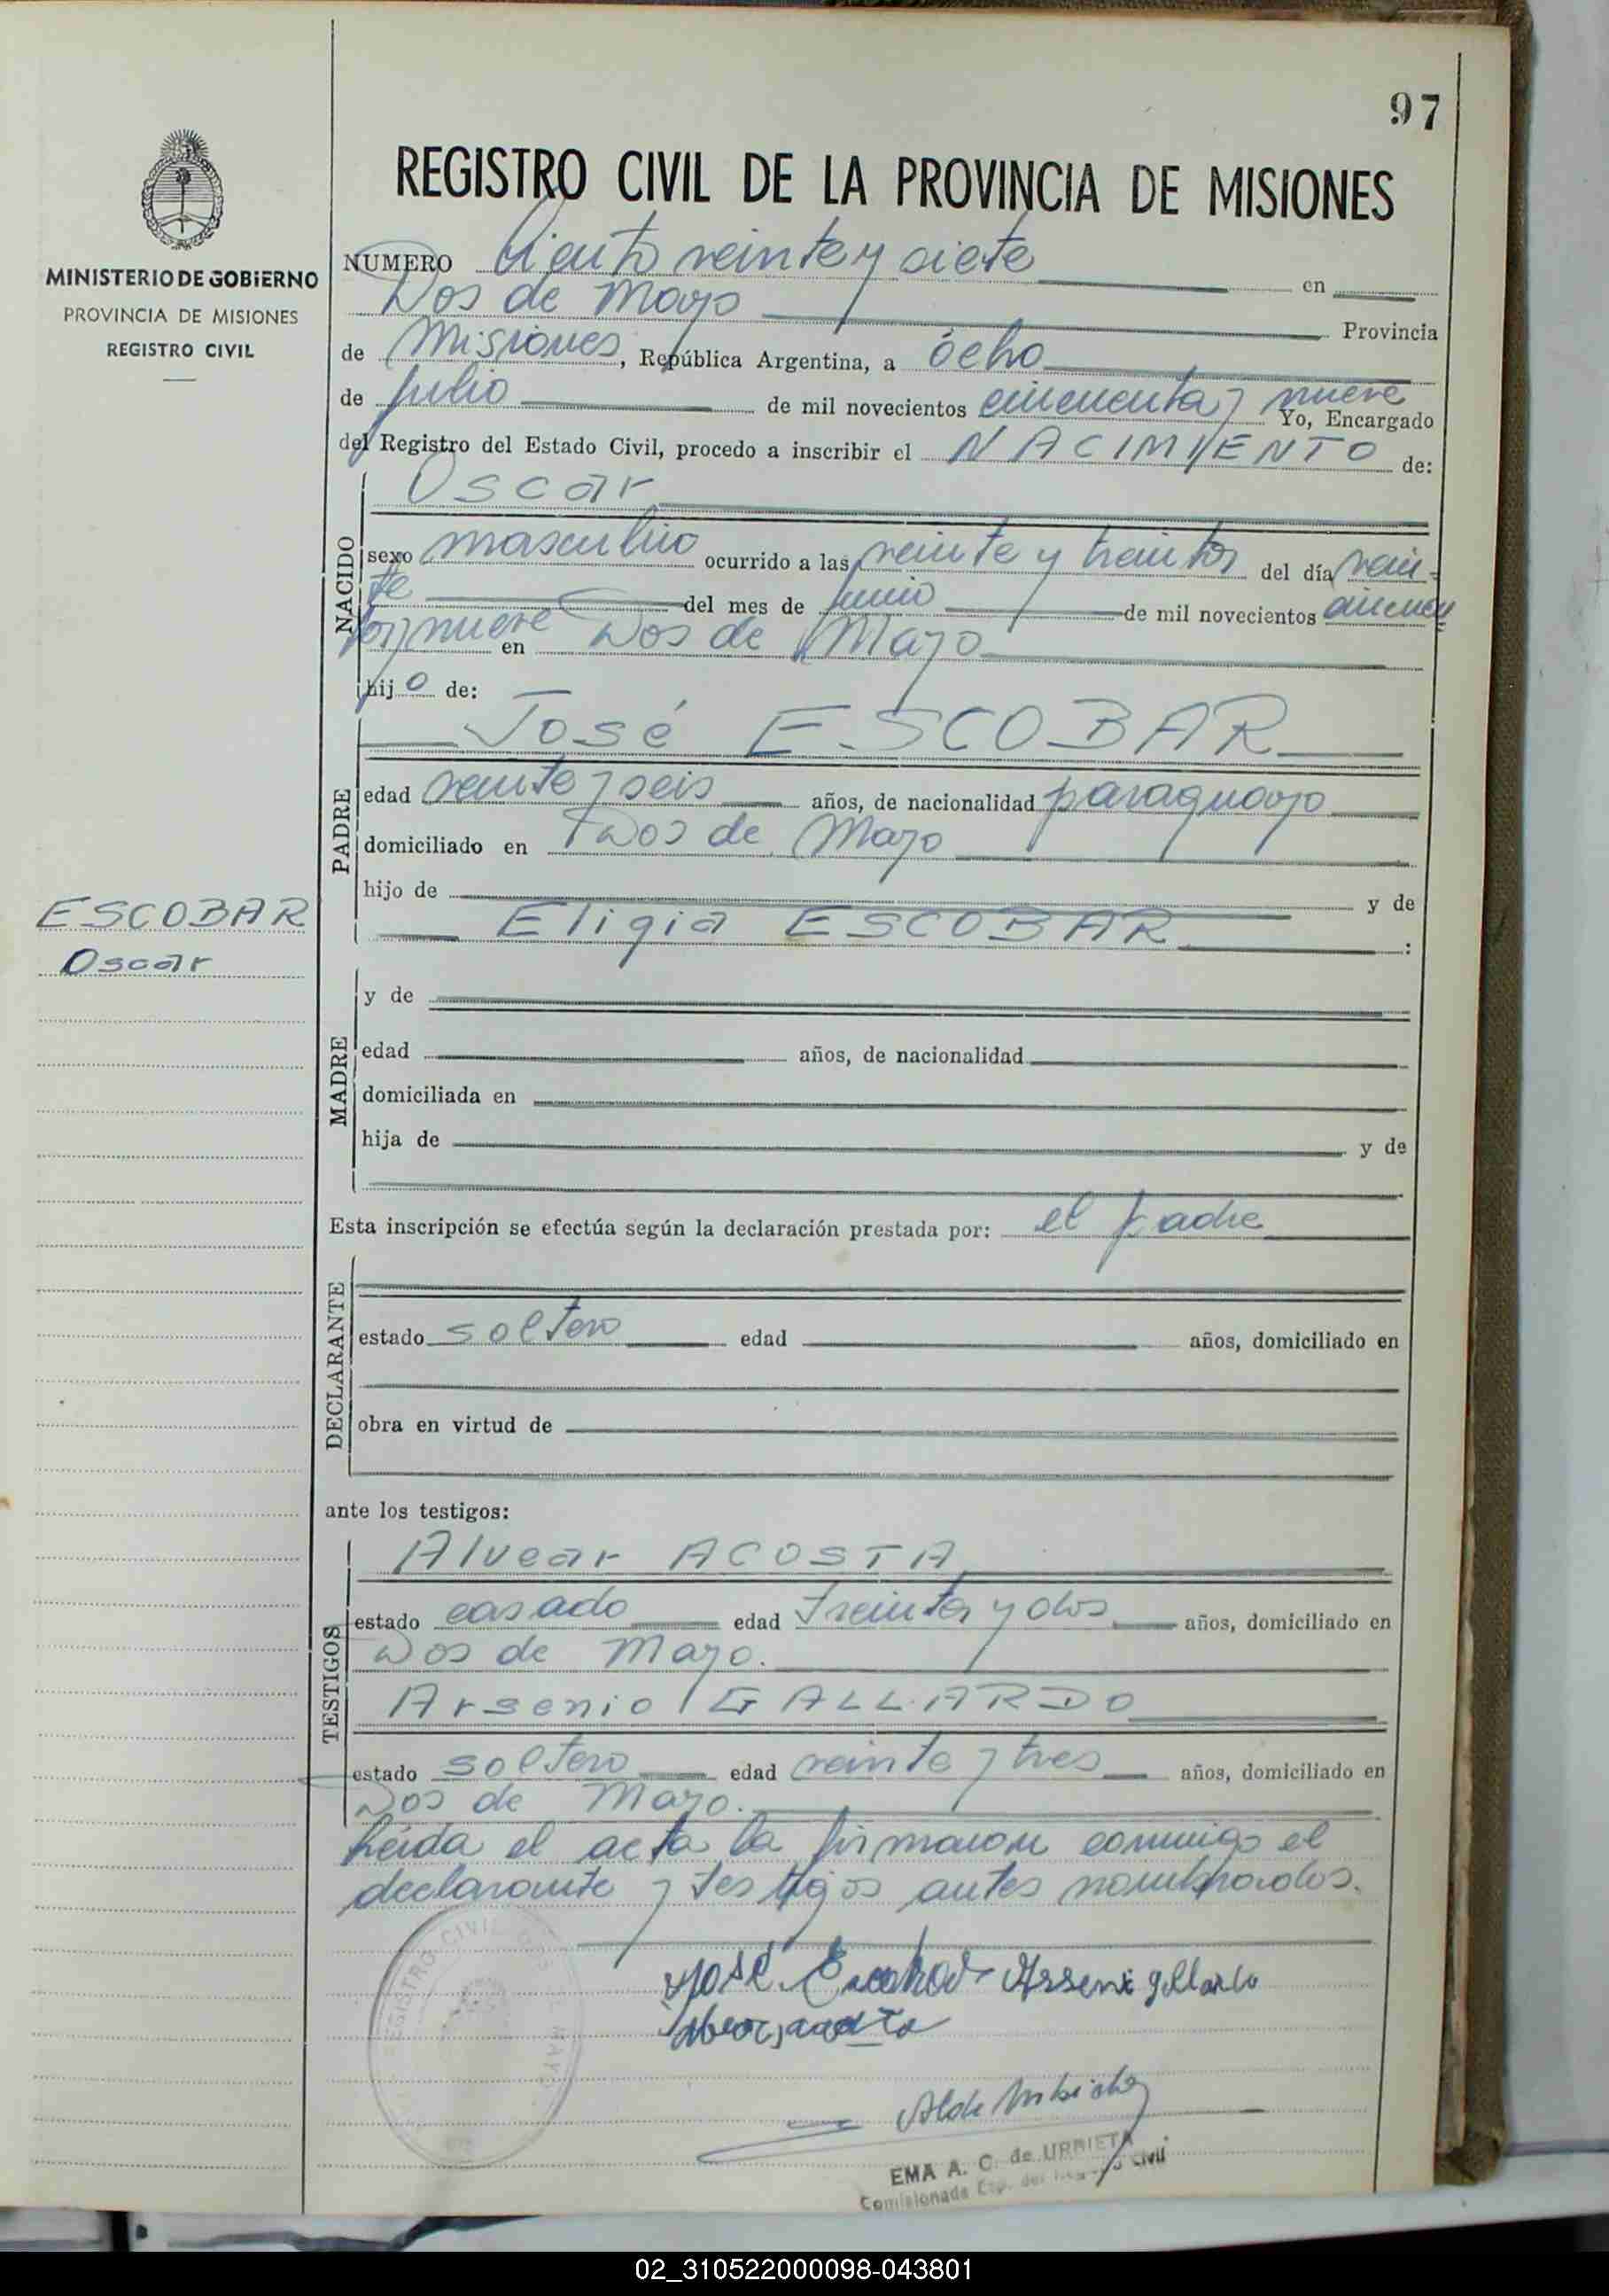 97
MINISTERIO DE GOBIERNO
PROVINCIA DE MISIONES
REGISTRO CIVIL
ESCOBAR
Oscar
REGISTRO CIVIL DE LA PROVINCIA DE MISIONES
NUMERO Ciento veinte y siete en
Dos de Mayo Provincia
de Misiones, República Argentina, a ocho
de julio de mil novecientos cincuenta y nueve Yo, Encargado
del Registro del Estado Civil, procedo a inscribir el NACIMIENTO de:
NACIDO
Oscar
sexo masculino ocurrido a las veinte y treinta del día vein-
te del mes de junio de mil novecientos cincuen
ta y nueve en Dos de Mayo
hijo de:
PADRE
José ESCOBAR
edad veinte y seis años, de nacionalidad paraguayo
domiciliado en Dos de Mayo
hijo de y de
Eligia ESCOBAR :
MADRE
y de
edad años, de nacionalidad
domiciliada en
hija de y de
Esta inscripción se efectúa según la declaración prestada por: el padre
DECLARANTE
estado soltero edad años, domiciliado en
obra en virtud de
ante los testigos:
TESTIGOS
Alvear ACOSTA
estado casado edad treinta y dos años, domiciliado en
Dos de Mayo.
Arsenio GALLARDO
estado soltero edad veinte y tres años, domiciliado en
Dos de Mayo.
Leida el acta la firmaron conmigo el
declarante y testigos antes nombrados.
REGISTRO CIVIL DOS DE MAYO
José Escobar Arseni gallardo
EMA A. C. de URBIETA
Comisionada Esp. del Registro Civil
02_310522000098-043801